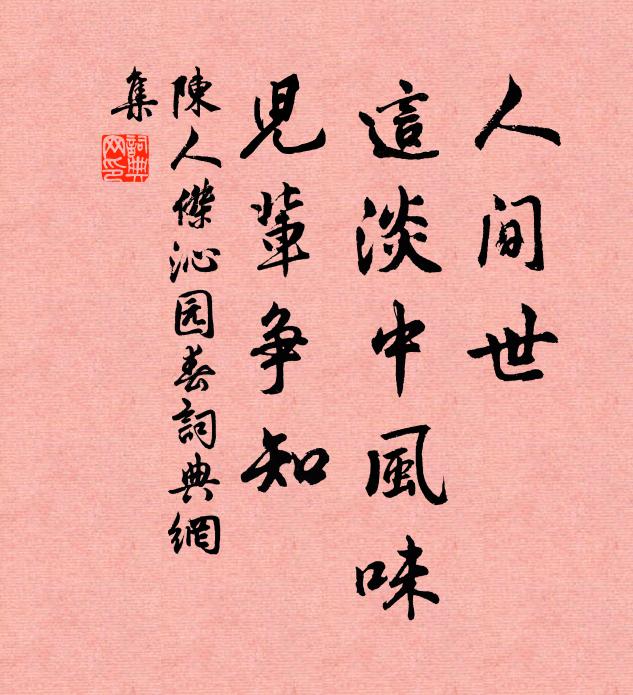 人间世
這淡中風味
兒輩争知
陳人傑沁园春詞典網
集
詞典网印